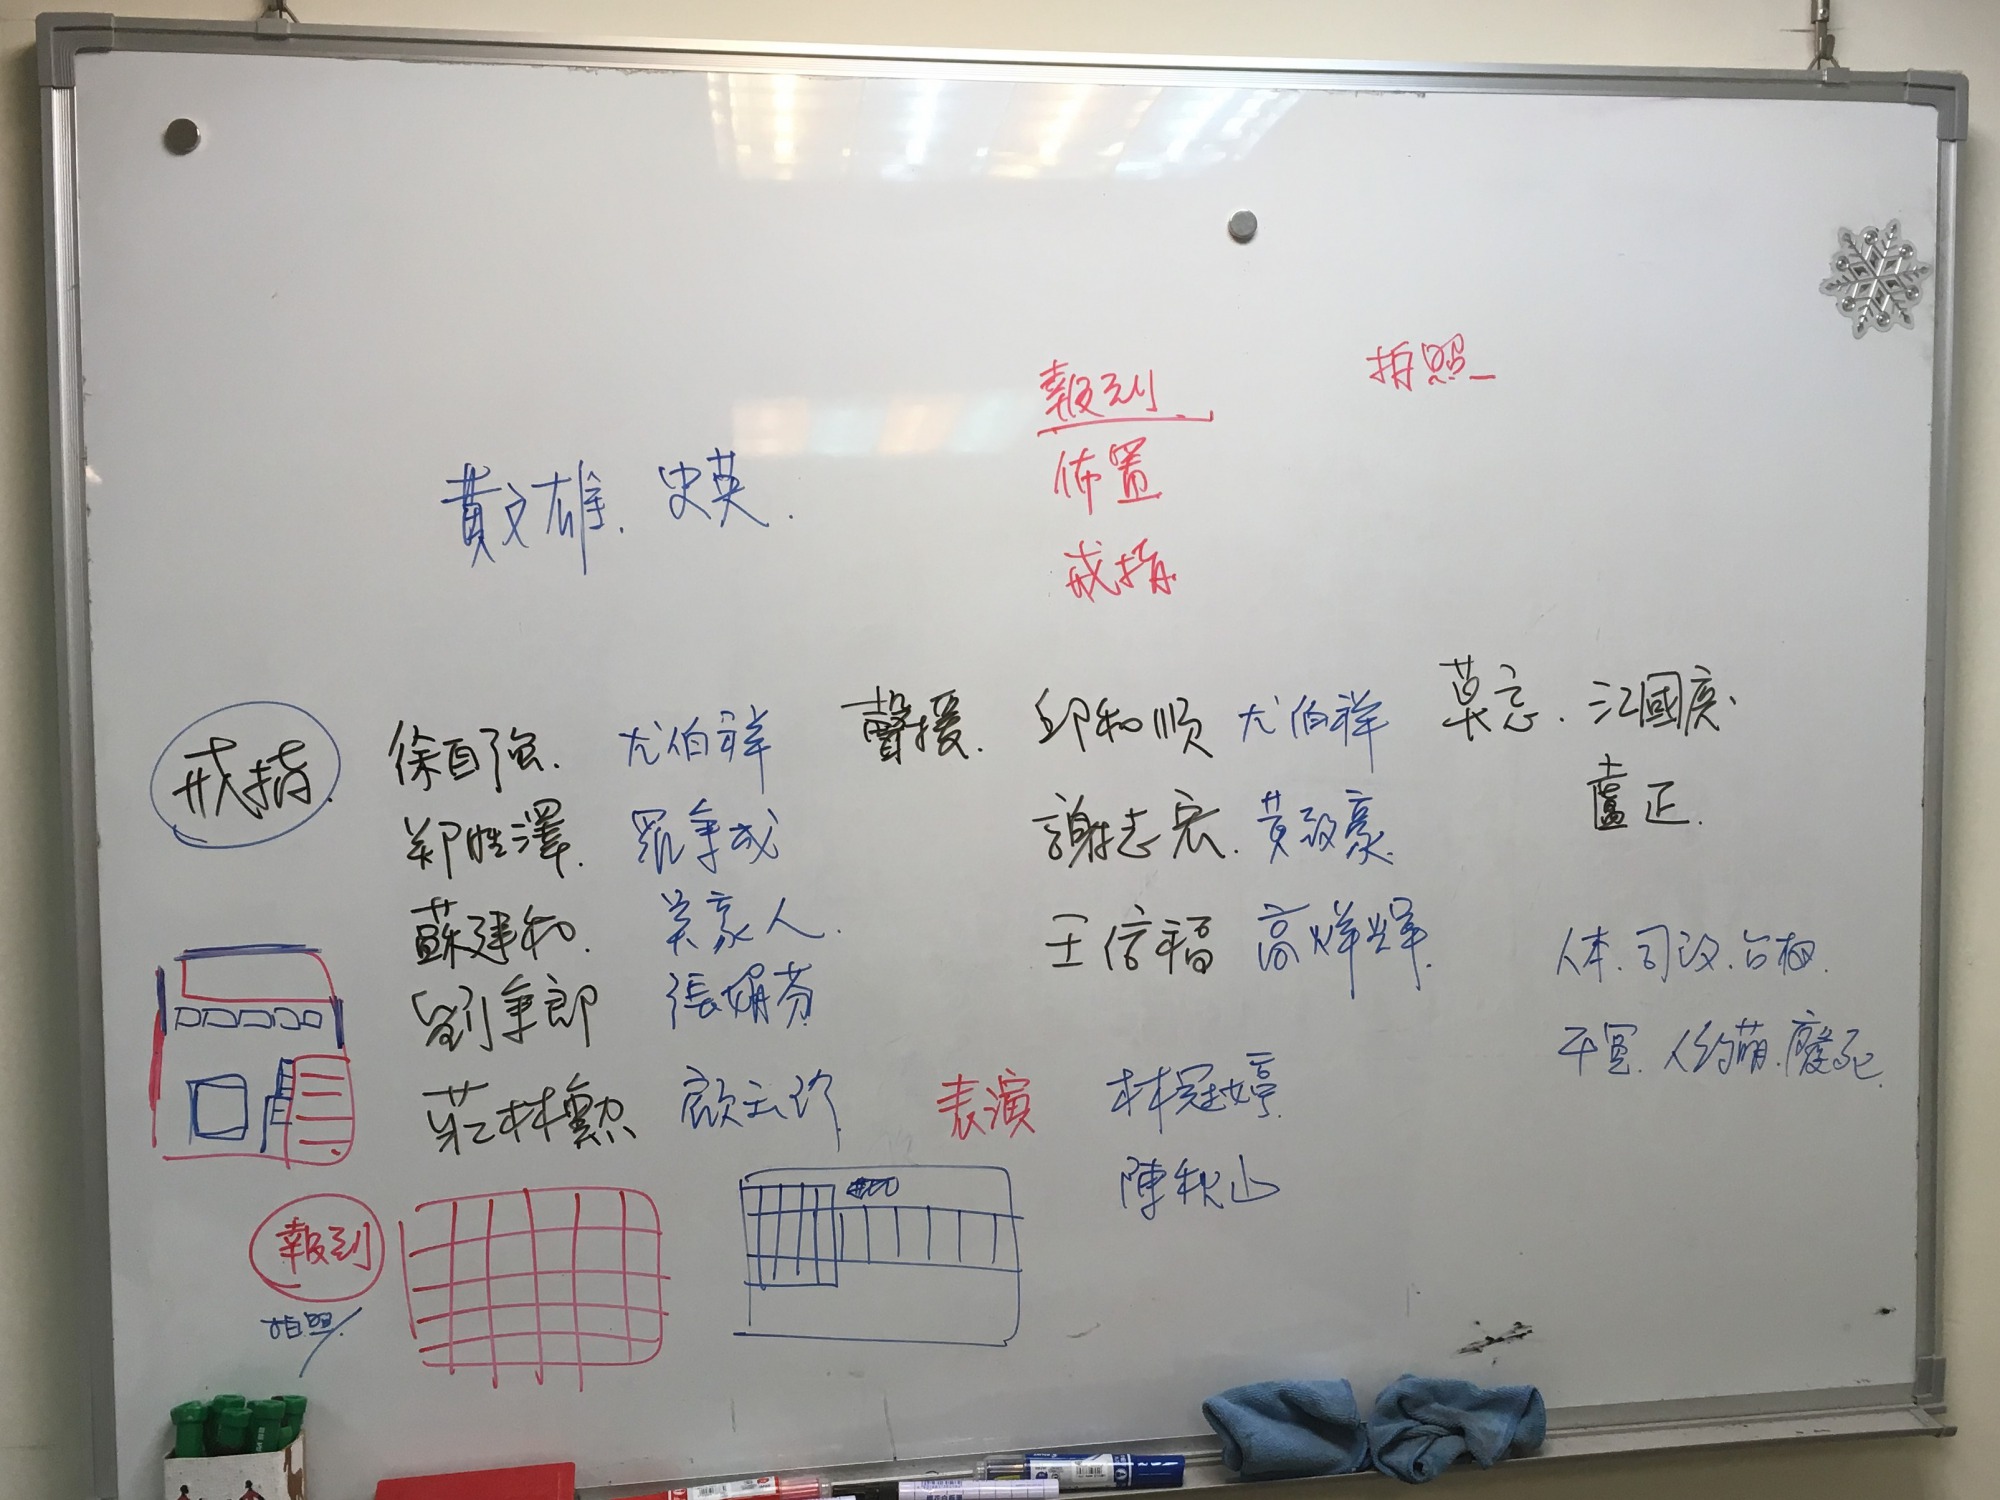 報到 拍照
佈置
戒指
黃文雄、史英.
戒指. 徐自強. 尤伯祥 聲援. 邱和順 尤伯祥 莫忘. 江國庆.
鄭性澤. 羅秉成 謝志宏. 黃致豪. 盧正.
蘇建和. 吴豪人. 王信福 高烊輝. 人本.司改.台权.
劉秉郎 張娟芬 平冤.人約盟.廢死.
莊林勳 顧立 表演 林冠婷.
陳秋山
報到
拍照